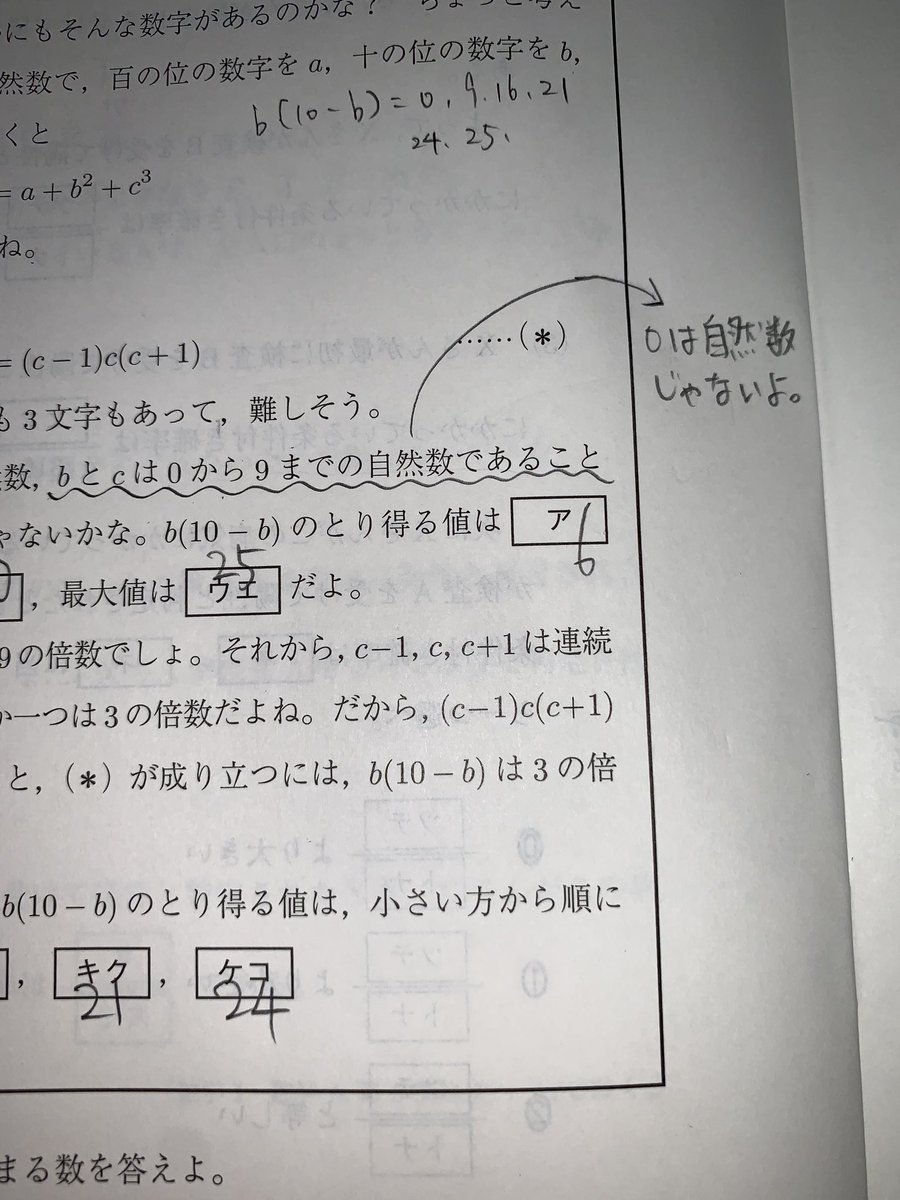 にもそんな数字があるのかな？ ちょっと考え
然数で，百の位の数字を a，十の位の数字を b，
b(10-b)=0, 9.16.21
24. 25.
くと
= a + b² + c³
ね。
= (c−1)c(c+1) ……(＊)
0は自然数
じゃないよ。
も3文字もあって，難しそう。
数，bとcは0から9までの自然数であること
ゃないかな。b(10−b) のとり得る値は ア 6
，最大値は ウエ 25 だよ。
9の倍数でしょ。それから，c−1, c, c+1は連続
か一つは3の倍数だよね。だから，(c−1)c(c+1)
と，(＊) が成り立つには，b(10−b) は3の倍
b(10−b) のとり得る値は，小さい方から順に
， キク 21 ， ケコ 24
まる数を答えよ。